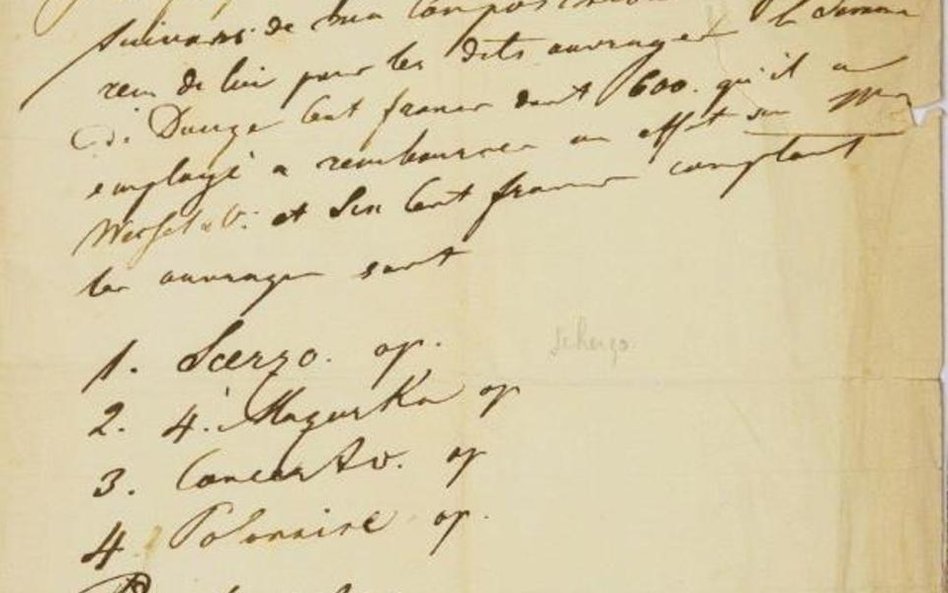 suivans de ma composition
reçu de lui pour les dits ouvrages la Somme
de Douze Cent francs dont 600. qu'il a
employé a rembourser un effet sur Mrs
Wessel & C. et Six Cent francs comptant
les ouvrages sont
1. Scerzo. op.
scherzo
2. 4. Mazurka op
3. Concerto. op
4 Polonaise op.